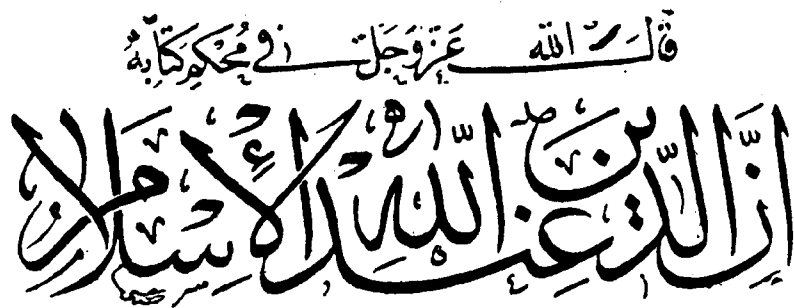 قَالَ اللهُ عَزَّ وَجَلَّ فِي مُحْكَمِ كِتَابِهِ
إِنَّ الدِّينَ عِنْدَ اللهِ الْإِسْلَامُ